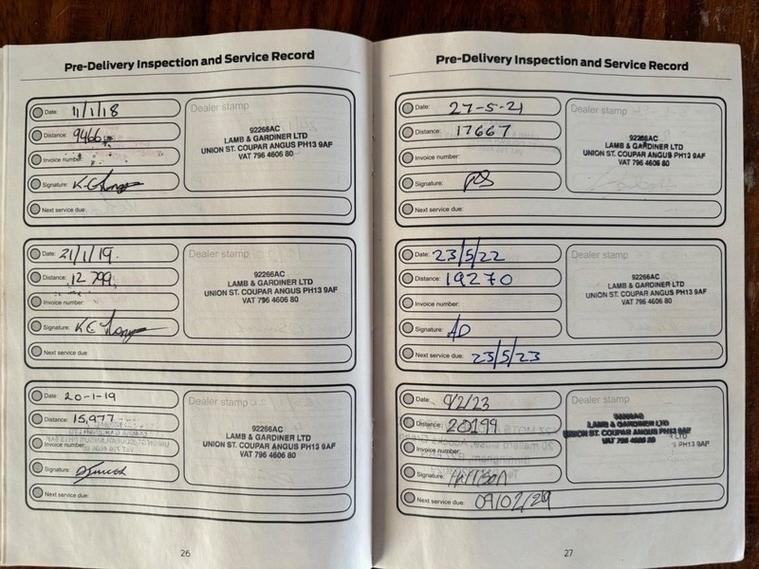 Pre-Delivery Inspection and Service Record
Date: 11/1/18
Distance: 9466
Invoice number:
Signature:
Next service due:
Dealer stamp
92266AC
LAMB & GARDINER LTD
UNION ST. COUPAR ANGUS PH13 9AF
VAT 796 4606 80
Date: 21/1/19.
Distance: 12 799
Invoice number:
Signature:
Next service due:
Dealer stamp
92266AC
LAMB & GARDINER LTD
UNION ST. COUPAR ANGUS PH13 9AF
VAT 796 4606 80
Date: 20-1-19
Distance: 15,977
Invoice number:
Signature:
Next service due:
Dealer stamp
92266AC
LAMB & GARDINER LTD
UNION ST. COUPAR ANGUS PH13 9AF
VAT 796 4606 80
26
Pre-Delivery Inspection and Service Record
Date: 27-5-21
Distance: 17667
Invoice number:
Signature:
Next service due:
Dealer stamp
92266AC
LAMB & GARDINER LTD
UNION ST. COUPAR ANGUS PH13 9AF
VAT 796 4606 80
Date: 23/5/22
Distance: 19270
Invoice number:
Signature: AD
Next service due: 23/5/23
Dealer stamp
92266AC
LAMB & GARDINER LTD
UNION ST. COUPAR ANGUS PH13 9AF
VAT 796 4606 80
Date: 9/2/23
Distance: 20199
Invoice number:
Signature:
Next service due: 09/02/24
Dealer stamp
LAMB & GARDINER LTD
UNION ST. COUPAR ANGUS PH13 9AF
VAT 796 4606 80
27